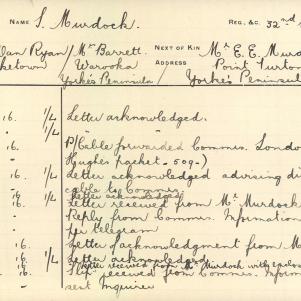 NAME S. Murdock. REG. &C. 32nd
lan Ryan / Mr Barrett NEXT OF KIN Mr E. E. Murd
ketown / Warooka ADDRESS Point Turton
Yorke's Peninsula Yorke's Peninsul
16. 1/4 Letter acknowledged.
" 1/4 " "
16. P/Cable forwarded Commrs. London
" Hughes packet - 509-)
16. 1/4 Letter acknowledged advising di
" cable to Commrs.
1/4 Letter acknowledged
16. Letter received from Mr Murdock
" Reply from Commrs. Information
per telegram
16. Letter of acknowledgment from M
16. 1/4 Letter acknowledged
1/4 Letter received from Mr Murdock with
16. received from Commrs. Infor
" sent Inquirer